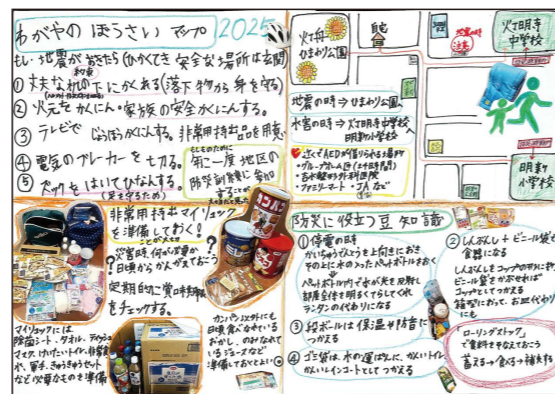 わがやの ぼうさい マップ 2025
もし、地震が おきたら(ひかくてき 安全な場所は玄関)
約束
① 丈夫なつくえの下にかくれる(落下物から身を守る)
② 火元をかくにん・家族の安全かくにんする。
③ テレビで じょうほうかくにんする。非常用持出品を用意
④ 電気のブレーカーを切る。
⑤ スリッパをはいてひなんする。
(足を守るため)
年に一度 地区の
防災訓練に参加
することが
灯明寺
ひまわり公園
自宅
地震の時
注意
灯明寺
中学校
地震の時⇒ひまわり公園へ
水害の時⇒灯明寺中学校
明新小学校へ
近くでAEDが借りられる場所
・グループホーム
・ファミリーマート ・JAなど
明新
小学校
非常用持出マイリュック
を準備しておく!
ことが大切
災害時、何が必要か
日頃からかんがえておこう
定期的に賞味期限
をチェックする。
カンパン
マイリュックには
除菌シート、タオル、ティッシュ
マスク、けいたいトイレ、非常食
水、軍手、きゅうきゅうセット
など必要なものを準備
カンパン以外にも
日頃食べなれている
おかし、のみなれて
いるジュースなど
準備しておくとよい
防災に役立つ豆知識
① 停電の時
かいちゅうでんとうを上向きにおき
その上に水の入ったペットボトルをおく
ペットボトル内で水が光を反射し
部屋全体を明るくてらしてくれ
ランタンの代わりになる
② しんぶんし + ビニール袋で
食器になる
しんぶんしをコップの形に折り
ビニール袋をかぶせれば
コップとしてつかえる
箱型におって、お皿代わり
にも
③ 段ボールは保温や防音に
つかえる
④ ゴミ袋は、水の運ぱんに、かんいトイレ
かんいレインコートとしてつかえる
「ローリングストック」
で食料をそなえておこう
蓄える→食べる→補充する